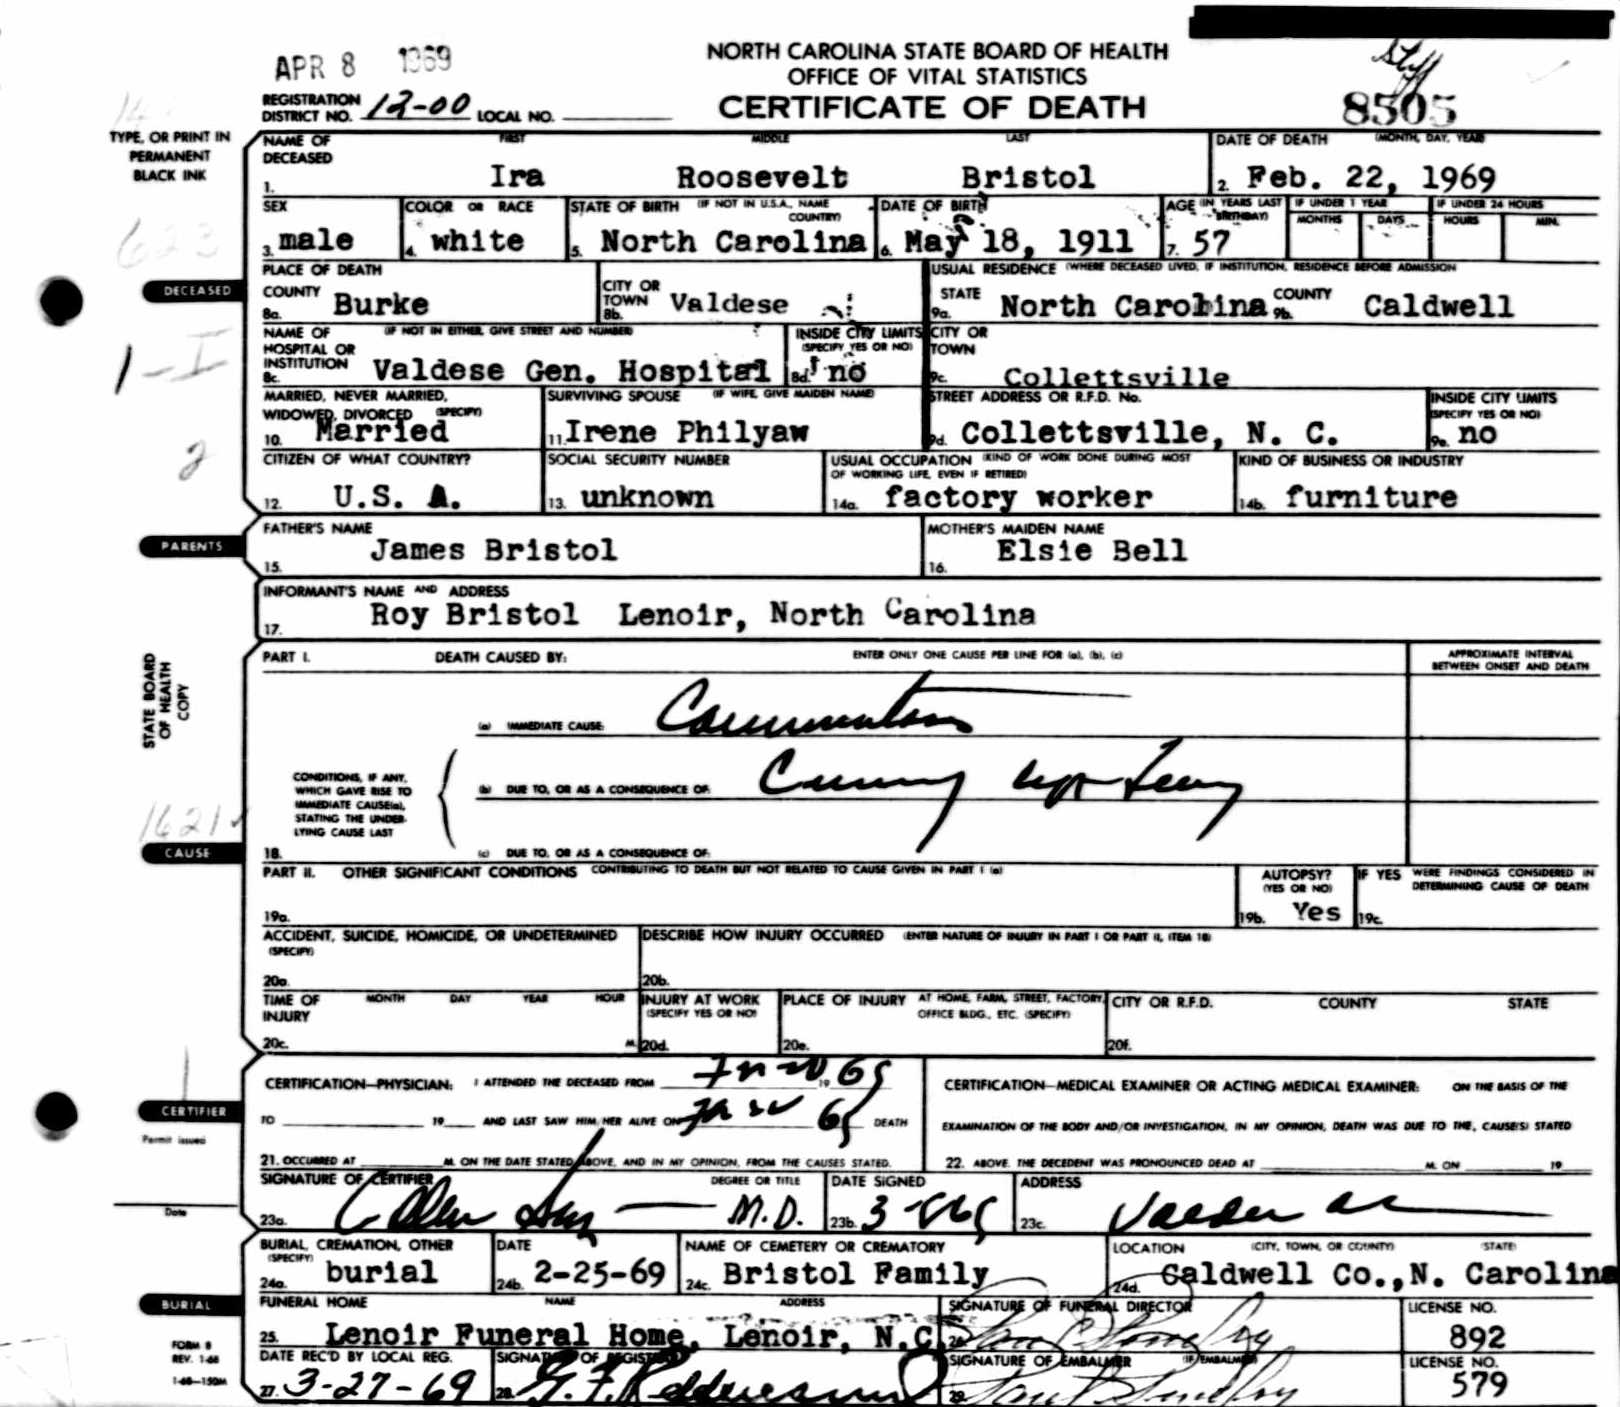 APR 8 1969
NORTH CAROLINA STATE BOARD OF HEALTH
OFFICE OF VITAL STATISTICS
CERTIFICATE OF DEATH
8505
REGISTRATION DISTRICT NO. 12-00 LOCAL NO.
TYPE, OR PRINT IN PERMANENT BLACK INK
623
DECEASED
1-I
2
NAME OF DECEASED FIRST MIDDLE LAST
1. Ira Roosevelt Bristol
DATE OF DEATH (MONTH, DAY, YEAR)
2. Feb. 22, 1969
SEX
3. male
COLOR OR RACE
4. white
STATE OF BIRTH (IF NOT IN U.S.A., NAME COUNTRY)
5. North Carolina
DATE OF BIRTH
6. May 18, 1911
AGE (IN YEARS LAST BIRTHDAY)
7. 57
IF UNDER 1 YEAR
MONTHS DAYS
IF UNDER 24 HOURS
HOURS MIN.
PLACE OF DEATH
COUNTY
8a. Burke
CITY OR TOWN
8b. Valdese
USUAL RESIDENCE (WHERE DECEASED LIVED, IF INSTITUTION, RESIDENCE BEFORE ADMISSION
STATE
9a. North Carolina
COUNTY
9b. Caldwell
NAME OF HOSPITAL OR INSTITUTION (IF NOT IN EITHER, GIVE STREET AND NUMBER)
8c. Valdese Gen. Hospital
INSIDE CITY LIMITS (SPECIFY YES OR NO)
8d. no
CITY OR TOWN
9c. Collettsville
MARRIED, NEVER MARRIED, WIDOWED, DIVORCED (SPECIFY)
10. Married
SURVIVING SPOUSE (IF WIFE, GIVE MAIDEN NAME)
11. Irene Philyaw
STREET ADDRESS OR R.F.D. No.
9d. Collettsville, N. C.
INSIDE CITY LIMITS (SPECIFY YES OR NO)
9e. no
CITIZEN OF WHAT COUNTRY?
12. U.S. A.
SOCIAL SECURITY NUMBER
13. unknown
USUAL OCCUPATION (KIND OF WORK DONE DURING MOST OF WORKING LIFE, EVEN IF RETIRED)
14a. factory worker
KIND OF BUSINESS OR INDUSTRY
14b. furniture
PARENTS
FATHER'S NAME
15. James Bristol
MOTHER'S MAIDEN NAME
16. Elsie Bell
INFORMANT'S NAME AND ADDRESS
17. Roy Bristol Lenoir, North Carolina
STATE BOARD OF HEALTH COPY
PART I. DEATH CAUSED BY: ENTER ONLY ONE CAUSE PER LINE FOR (a), (b), (c)
APPROXIMATE INTERVAL BETWEEN ONSET AND DEATH
(a) IMMEDIATE CAUSE:
CONDITIONS, IF ANY, WHICH GAVE RISE TO IMMEDIATE CAUSE(a), STATING THE UNDERLYING CAUSE LAST
(b) DUE TO, OR AS A CONSEQUENCE OF:
1621
CAUSE
18. (c) DUE TO, OR AS A CONSEQUENCE OF:
PART II. OTHER SIGNIFICANT CONDITIONS CONTRIBUTING TO DEATH BUT NOT RELATED TO CAUSE GIVEN IN PART I (a)
19a.
AUTOPSY? (YES OR NO)
19b. Yes
IF YES WERE FINDINGS CONSIDERED IN DETERMINING CAUSE OF DEATH
19c.
ACCIDENT, SUICIDE, HOMICIDE, OR UNDETERMINED (SPECIFY)
20a.
DESCRIBE HOW INJURY OCCURRED (ENTER NATURE OF INJURY IN PART I OR PART II, ITEM 18)
20b.
TIME OF INJURY MONTH DAY YEAR HOUR
20c. M.
INJURY AT WORK (SPECIFY YES OR NO)
20d.
PLACE OF INJURY AT HOME, FARM, STREET, FACTORY, OFFICE BLDG., ETC. (SPECIFY)
20e.
CITY OR R.F.D. COUNTY STATE
20f.
CERTIFIER
Permit issued
Date
CERTIFICATION—PHYSICIAN: I ATTENDED THE DECEASED FROM 19 69
TO 19 AND LAST SAW HIM/HER ALIVE ON 69 DEATH
21. OCCURRED AT M. ON THE DATE STATED ABOVE, AND IN MY OPINION, FROM THE CAUSES STATED.
CERTIFICATION—MEDICAL EXAMINER OR ACTING MEDICAL EXAMINER: ON THE BASIS OF THE
EXAMINATION OF THE BODY AND/OR INVESTIGATION, IN MY OPINION, DEATH WAS DUE TO THE, CAUSE(S) STATED
22. ABOVE. THE DECEDENT WAS PRONOUNCED DEAD AT M. ON 19
SIGNATURE OF CERTIFIER DEGREE OR TITLE
23a. M.D.
DATE SIGNED
23b.
ADDRESS
23c.
BURIAL, CREMATION, OTHER (SPECIFY)
24a. burial
DATE
24b. 2-25-69
NAME OF CEMETERY OR CREMATORY
24c. Bristol Family
LOCATION (CITY, TOWN, OR COUNTY) (STATE)
24d. Caldwell Co.,N. Carolina
BURIAL
FUNERAL HOME NAME ADDRESS
25. Lenoir Funeral Home, Lenoir, N.C.
SIGNATURE OF FUNERAL DIRECTOR
26.
LICENSE NO.
892
FORM 8
REV. 1-68
1-68—150M
DATE REC'D BY LOCAL REG.
27. 3-27-69
SIGNATURE OF REGISTRAR
28. G.F.
SIGNATURE OF EMBALMER (IF EMBALMED)
29.
LICENSE NO.
579